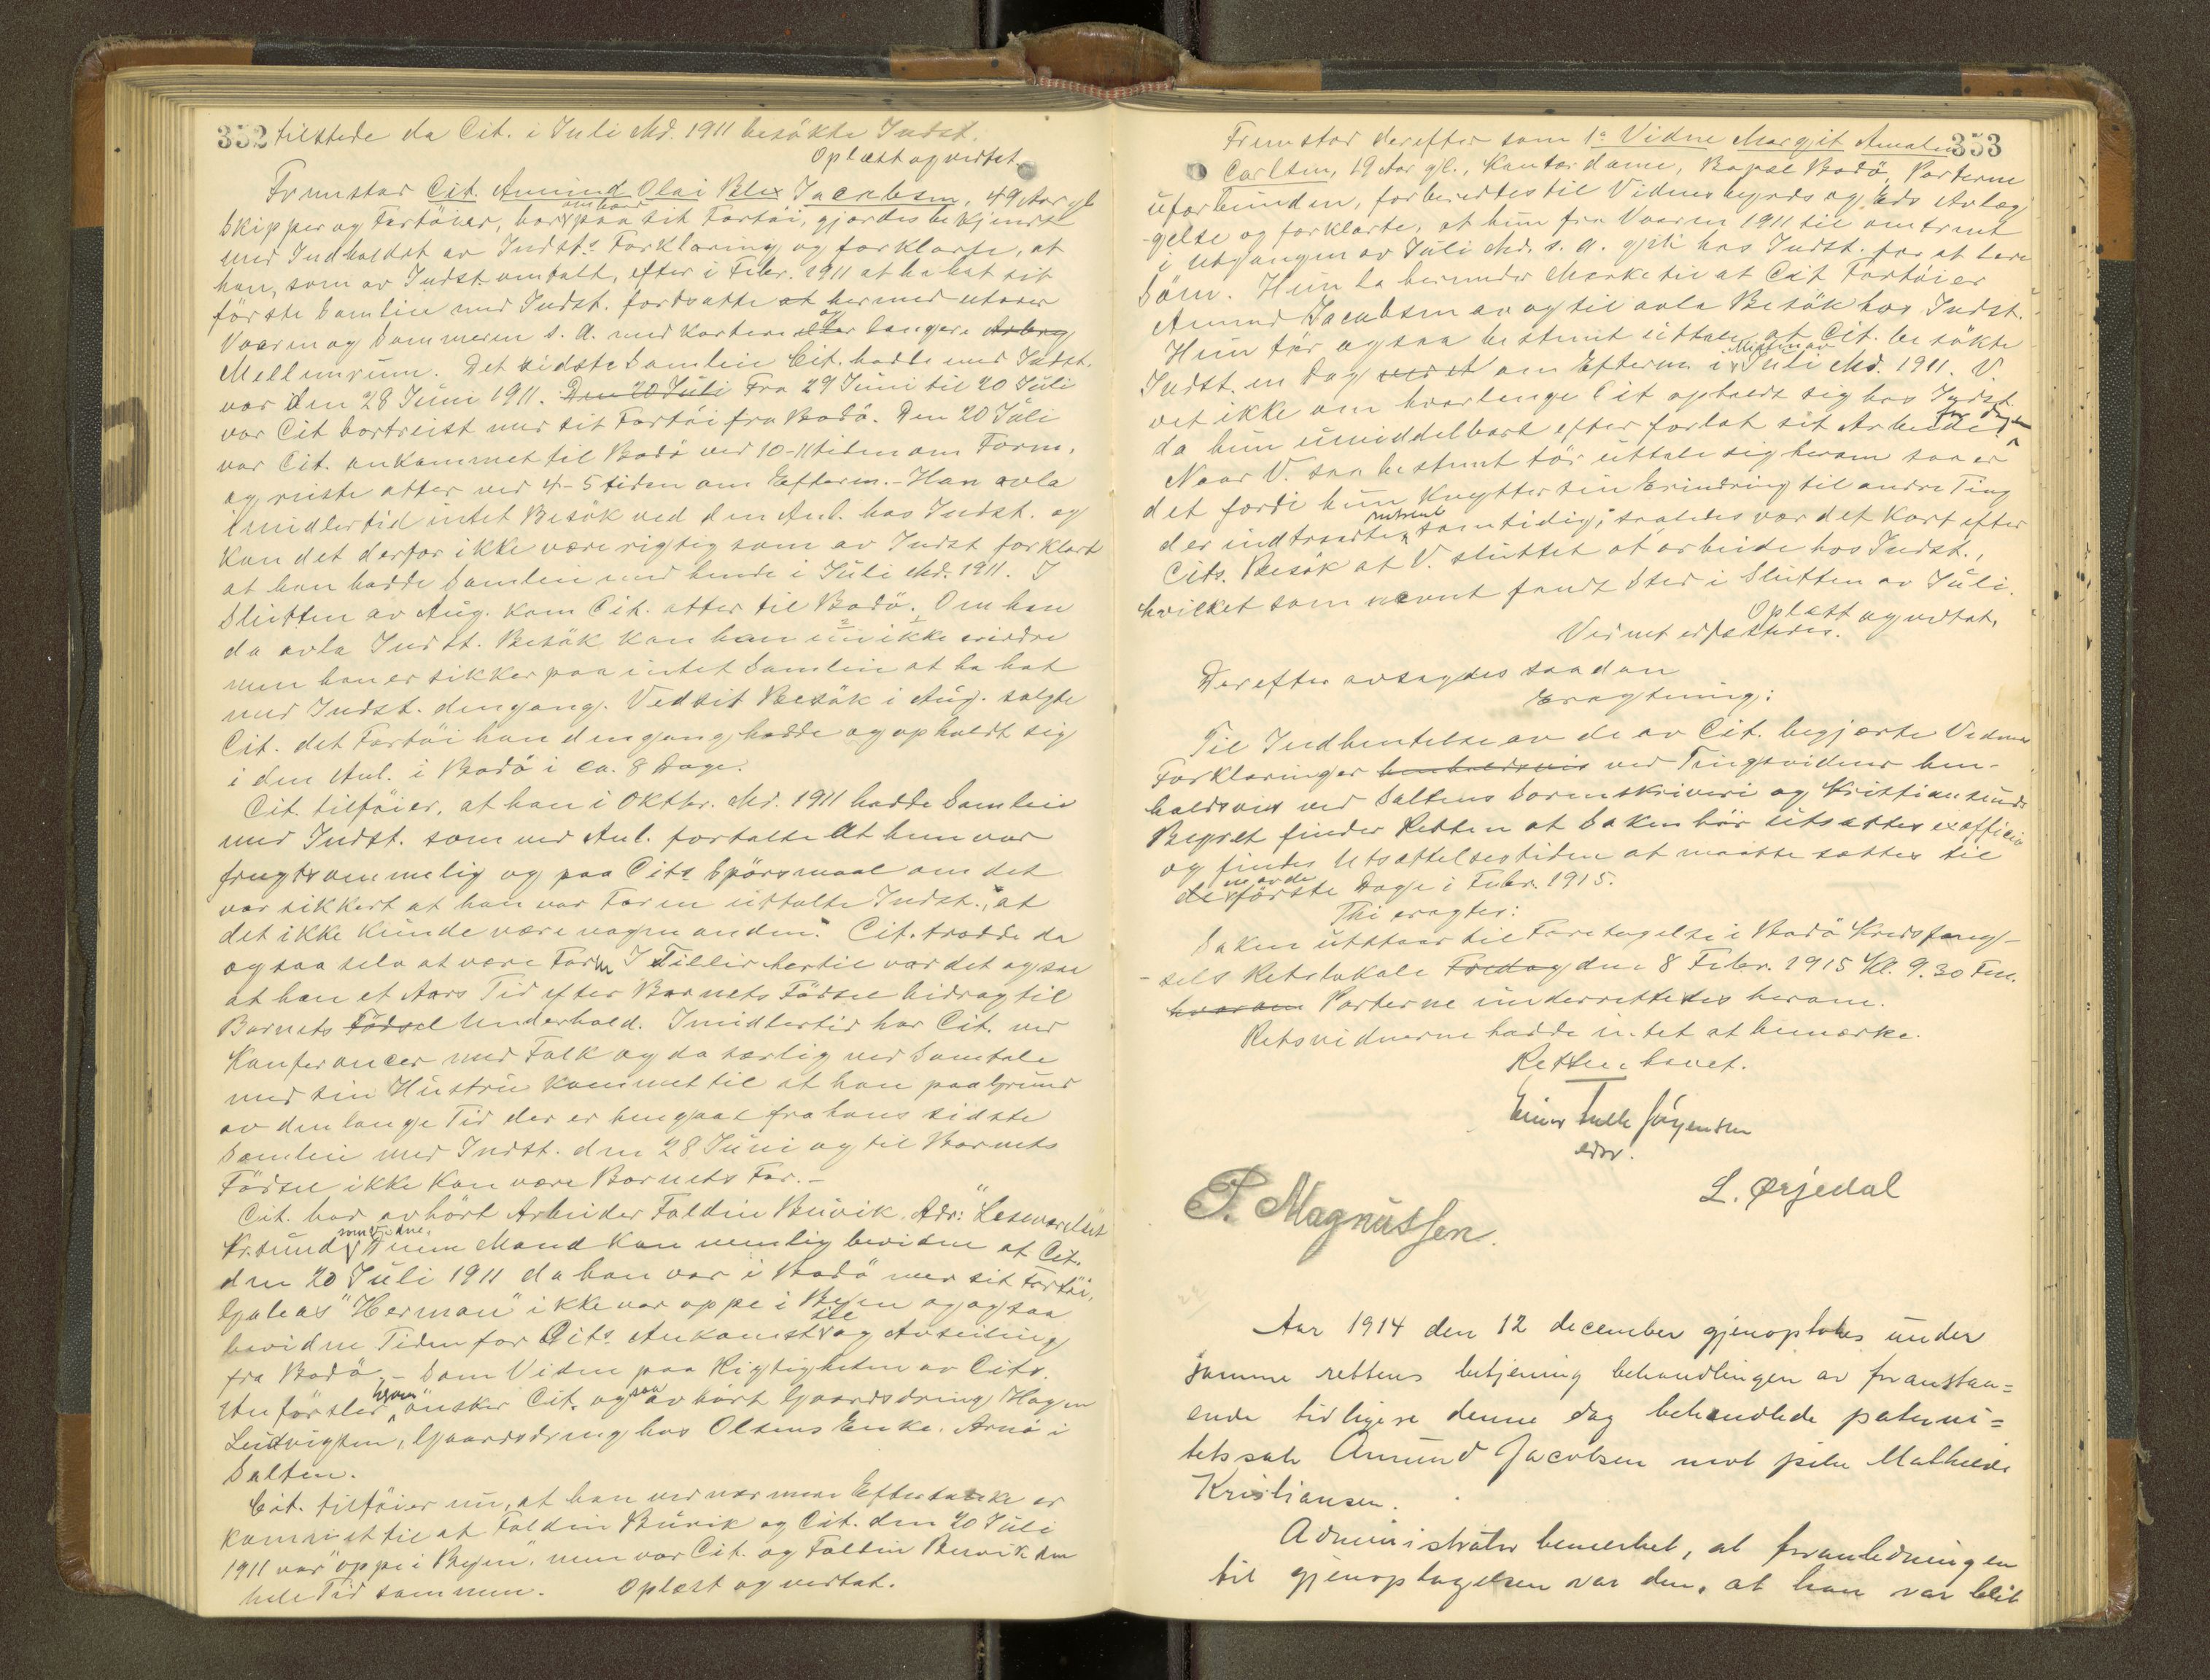 352 tilstede da Cit. i Juli Md. 1911 besökte Indst.
Oplæst og vedtat.
Fremstod Cit. Amund Olai Blix Jacobsen, 49 Aar gl.
Skipper og Fartöier, bor ombord paa sit Fartöi, gjordes bekjendt
med Indholdet av Indst.s Forklaring og forklarte, at
han, som av Indst. omtalt, efter i Febr. 1911 at ha hat sit
förste Samleie med Indst. fortsatte at hermed utover
Vaaren og Sommeren s. A. med kortere eller og længere Arbrey
Mellemrum. Det sidste Samleie Cit. hadde med Indst.
var den 28 Juni 1911. Den 20 Juli Fra 29 Juni til 20 Juli
var Cit bortreist med sit Fartöi fra Bodö. Den 20 Juli
var Cit. ankommet til Bodö ved 10-11 tiden om Form.
og reiste atter ved 4-5 tiden om Efterm. - Han avla
imidlertid intet Besök ved den Anl. hos Indst. og
kan det derfor ikke være rigtig som av Indst forklart
at han hadde Samleie med hende i Juli Md. 1911. I
Slutten av Aug. kom Cit. atter til Bodö. Om han
da avla Indst. Besök kan han nu ikke erindre
men han er sikker paa intet Samleie at ha hat
med Indst. dengang. Ved sit Besök i Aug. solgte
Cit. det Fartöi han dengang hadde og opholdt sig
i den Anl. i Bodö i ca. 8 Dage.
Cit. tilföier, at han i Oktbr. Md. 1911 hadde Samleie
med Indst. som ved Anl. fortalte at hun var
frugtsommelig og paa Cits Spörsmaal om det
var sikkert at han var Faren uttalte Indst., at
det ikke kunde være nogen anden. Cit. trodde da
ogsaa selv at være Faren I Tillit hertil var det ogsaa
at han et Aars Tid efter Barnets Födsel bidrog til
Barnets Födsel Underhold. Imidlertid har Cit. ved
Konferancer med Folk og da særlig ved Samtale
med sin Hustru kommet til at han paa Grund
av den lange Tid der er hengaat fra hans sidste
Samleie med Indst. den 28 Juni og til Barnets
Födsel ikke kan være Barnets Far. -
Cit. har avhört Arbeider Faldin Buvik. Adr: "Læseværelset
Kr.sund som Vidne. Denne Mand kan nemlig bevidne at Cit.
den 20 Juli 1911 da han var i Bodö med sit Fartöi,
Galeas "Herman" ikke var oppe i Byen og ogsaa
bevidne Tiden for Cits. Ankomst til og Avseiling
fra Bodö. - Som Vidne paa Rigtigheten av Cits.
Anförsler herom önsker Cit. ogsaa avhört Gaardsdreng Hagen
Ludvigsen, Gaardsdreng hos Olsens Enke. Arnö i
Salten.
Cit. tilföier nu, at han ved nærmere Eftertanke er
kommet til at Faldin Buvik og Cit. den 20 Juli
1911 var "oppe i Byen", men var Cit. og Faldin Buvik den
hele Tid sammen. Oplæst og vedtat.
353
Fremstod derefter som 1ste Vidne Margit Amalie
Carlsen, 19 Aar gl., Kontordame, Bopæl Bodö, Parterne
uforbunden, forberedtes til Vidnesbyrds og Eds Avlæg-
-gelse og forklarte, at hun fra Vaaren 1911 til omtrent
i Utgangen av Juli Md. s. A. gik hos Indst. for at lære
Söm. Hun la herunder Merke til at Cit. Fartöier
Amund Jacobsen av og til avla Besök hos Indst.
Hun tör ogsaa bestemt uttale, at Cit. besökte
Indst. en Dag ved et om Efterm. i Midten av Juli Md. 1911. V.
vet ikke om hvorlenge Cit opholdt sig hos Indst.
da hun umiddelbart efter forlot sit Arbeide for Dagen
Naar V. saa bestemt tör uttale sig herom saa er
det fordi hun knytter sin Erindring til andre Ting
der indtraadte samtidig; saaledes var det kort efter
Cits. Besök at V. sluttet at arbeide hos Indst.,
hvilket som nævnt fandt Sted i Slutten av Juli.
Oplæst og vedtat.
Vidnet edfæstedes.
Derefter avsagdes saadan
Eragtning:
Til Indhentelse av de av Cit. begjærte Vidne
Forklaringer henholdsvis ved Tingsvidner hen-
holdsvis ved Saltens Sorenskriveri og Kristiansunds
Byret finder Retten at Saken bör utsættes exofficio
og findes Utsættelsestiden at maatte sættes til
de en av de förste Dage i Febr. 1915.
Thi eragtes:
Saken utstaar til Foretagelse i Bodö Kredsfæng-
-sels Retslokale Fredag den 8 Febr. 1915 Kl. 9.30 Fm.
hvorom Parterne underrettedes herom.
Retsvidnerne hadde intet at bemærke.
Retten hævet.
Einar Jörgensen
edsv.
P. Magnussen.
L. Ørjedal
Aar 1914 den 12 december gjenoptokes under
samme rettens betjening behandlingen av foranstaa=
ende tidligere denne dag behandlede paterni=
tetssak Amund Jacobsen mot pike Mathilde
Kristiansen.
Administrator bemerket, at foranledningen
til gjenoptagelsen var den, at han var blit